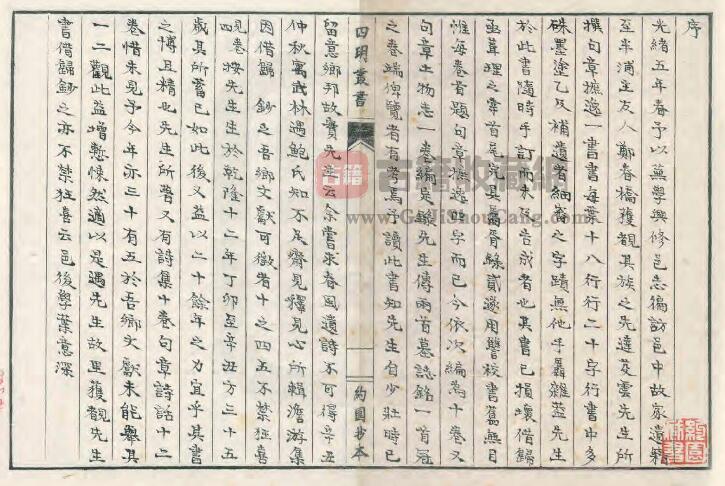 序
光緒五年春予以董學興修邑志徧訪邑中故家遺籍
至半浦主友人鄭春橋獲覩其族之先達芰雲先生所
撰句章摭逸一書書每葉十八行行二十字行書中多
硃墨塗乙及補遺者細審之字蹟無他手羼雜蓋先生
於此書隨時手訂而未及告成者也其書已損壞借歸
亟葺理之幸首尾完具爰膳錄貳遂用讐校書舊無目
惟每卷首題句章摭逸四字而已今依次編為十卷又
句章土物志一卷編是錄先生傳兩首墓誌銘一首冠
之卷端俾覽者有考焉予讀此書知先生自少壯時已
四明叢書
約園抄本
留意鄉邦故實先生云余嘗求春風遺詩不可得辛丑
仲秋寓武林遇鮑氏知不足齋見釋見心所輯澹游集
因借歸 鈔之吾鄉文獻可徵者十之四五不禁狂喜
四見卷按先生生於乾隆十二年丁卯至辛丑方三十五
歲其所蓄已如此後又益以二十餘年之力宜乎其書
之博且精也先生所著又有詩集十卷句章詩話十二
卷惜未見予今年亦三十有五於吾鄉文獻未能舉其
一二觀此益增慙悚然適以是遇先生故里獲觀先生
書借歸鈔之亦不禁狂喜云邑後學葉意深
古籍收藏網
www.GuJiShouCang.com